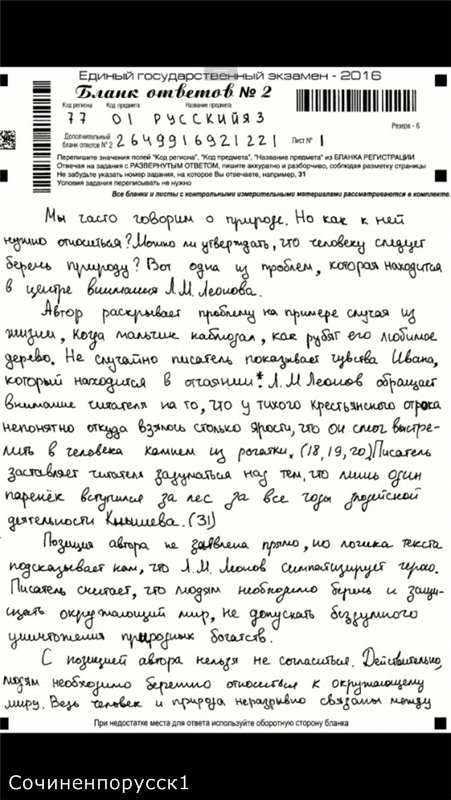 Единый государственный экзамен - 2016
Бланк ответов № 2
Код региона Код предмета Название предмета
77 01 РУССКИЙЯЗ
Резерв - 6
Дополнительный
бланк ответов № 2 2649916921221 Лист № 1
Перепишите значения полей "Код региона", "Код предмета", "Название предмета" из БЛАНКА РЕГИСТРАЦИИ
Отвечая на задания с РАЗВЕРНУТЫМ ОТВЕТОМ, пишите аккуратно и разборчиво, соблюдая разметку страницы
Не забудьте указать номер задания, на которое Вы отвечаете, например, 31
Условия задания переписывать не нужно
Все бланки и листы с контрольными измерительными материалами рассматриваются в комплекте.
Мы часто говорим о природе. Но как к ней
нужно относиться? Можно ли утверждать, что человеку следует
беречь природу? Вот одна из проблем, которая находится
в центре внимания Л.М. Леонова.
Автор раскрывает проблему на примере случая из
жизни, когда мальчик наблюдал, как рубят его любимое
дерево. Не случайно писатель показывает чувства Ивана,
который находится в отчаянии*. Л.М Леонов обращает
внимание читателя на то, что у тихого крестьянского отрока
непонятно откуда взялось столько ярости, что он смог выстре-
лить в человека камнем из рогатки. (18, 19, 20) Писатель
заставляет читателя задуматься над тем, что лишь один
паренёк вступился за лес за все годы злодейской
деятельности Кнышева. (31)
Позиция автора не заявлена прямо, но логика текста
подсказывает нам, что Л.М. Леонов симпатизирует герою.
Писатель считает, что людям необходимо беречь и защи-
щать окружающий мир, не допускать бездумного
уничтожения природных богатств.
С позицией автора нельзя не согласиться. Действительно,
людям необходимо бережно относиться к окружающему
миру. Ведь человек и природа неразрывно связаны между
При недостатке места для ответа используйте оборотную сторону бланка
Сочиненпорусск1